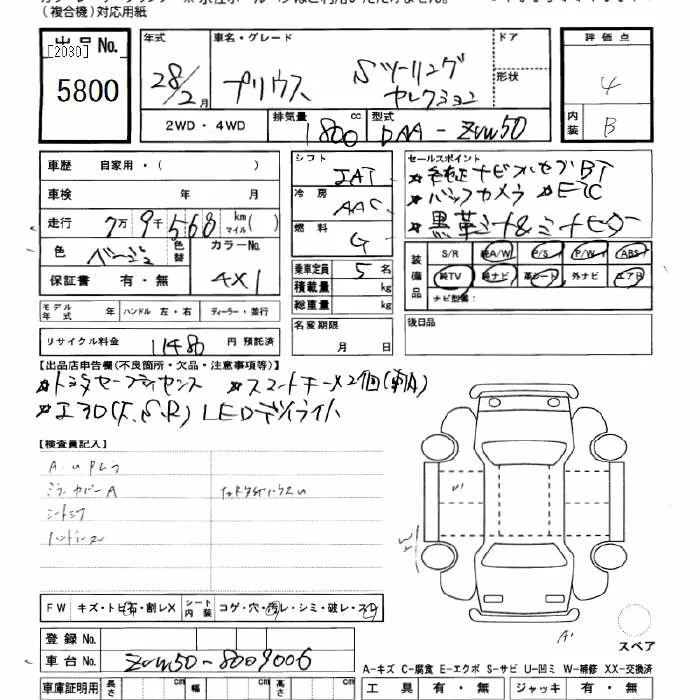 (複合機)対応用紙
出品No.
[2030]
5800
年式 車名・グレード ドア 評価点
28/2月 プリウス Sツーリング
セレクション
形状
4
2WD・4WD 排気量 1800 cc 型式 DAA-ZVW50
内装 B
車歴 自家用・( )
車検 年 月
走行 7万9千568 km マイル( )
色 ベージュ 色替 カラーNo. 4X1
保証書 有・無
モデル年式 ハンドル 左・右 ディーラー・並行
リサイクル料金 11480 円 預託済
シフト IAT
冷房 AAC
燃料 G
乗車定員 5 名
積載量 kg
総重量 kg
名変期限
月 日
セールスポイント
純正ナビフルセグBT
バックカメラ ETC
黒革シート&シートヒーター
装備品
S/R 純A/W P/S P/W ABS
純TV 純ナビ 革シート 外ナビ エアB
ナビ型番:
後日品
【出品店申告欄(不良箇所・欠品・注意事項等)】
トヨタセーフティセンス スマートキー×2個(車内)
エアロ(F,S,R) LEDデイライト
【検査員記入】
ミラーカバーA
FW キズ・トビ石・割レX シート内装 コゲ・穴・汚レ・シミ・破レ・スレ
登録No.
車台No. ZVW50-8009006
車庫証明用 長さ cm 幅 cm 高さ cm
W
A'
スペア
A-キズ C-腐食 E-エクボ S-サビ U-凹ミ W-補修 XX-交換済
工具 有・無 ジャッキ 有・無